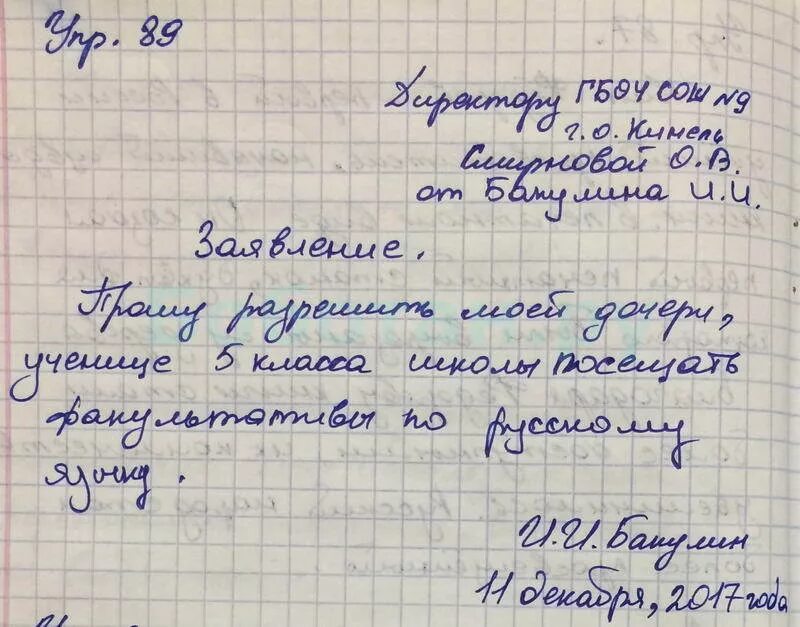 Упр. 89
Директору ГБОУ СОШ №9
г.о. Кинель
Смирновой О.В.
от Бакулина И.И.
Заявление.
Прошу разрешить моей дочери,
ученице 5 класса школы посещать
факультативы по русскому
языку.
И.И. Бакулин
11 декабря, 2017 года